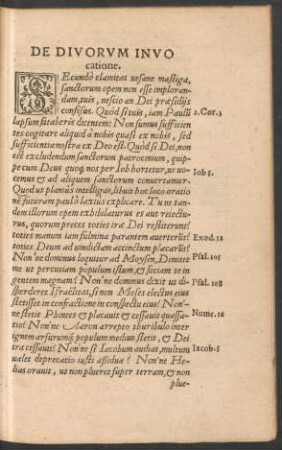 DE DIVORVM INVO
catione.
SEcundò clamitas uesane mastiga,
sanctorum opem non esse imploran-
dam, tuis, nescio an Dei præsidijs
confisus. Quòd si tuis, iam Paulli
lapsum fitaberis dicentem: Non sumus sufficien
tes cogitare aliquid à nobis quasi ex nobis, sed
sufficientia nostra ex Deo est. Quòd si Dei, non
est excludendum sanctorum patrocinium, quip-
pe cum Deus quoq; nos per Iob hortetur, ut uo-
cemus & ad aliquem sanctorum conuertamur.
Quod ut planius intelligas, libuit hoc loco oratio
ne futuram paulò laxius explicare. Tu ne tan
dem illorum opem exhibilaturus es aut reiectu-
rus, quorum preces toties iræ Dei restiterunt?
toties manum iam fulmina parantem auerterūt?
toties Deum ad uindictam accinctum placarūt?
Non'ne dominus loquitur ad Moysen, Dimitte
me ut percutiam populum istum, & faciam te in
gentem magnam? Non'ne dominus dixit ut di-
sperderet Israëlitas, si non Moses electus eius
stetisset in confractione in conspectu eius? Non'-
ne stetit Phinees & placauit & cessauit quassa-
tio? Non ne Aaron arrepto thuribulo inter
ignem arsurumq; populum medius stetit, & Dei
ira cessauit? Non'ne si Iacobum audias, multum
ualet deprecatio iusti assidua? Non'ne He-
lias orauit, ut non plueret super terram, & non
plue-
2. Cor. 3
Iob 5.
Exod. 32
Psal. 105
Psal. 108
Nume. 16
Iacob. 5